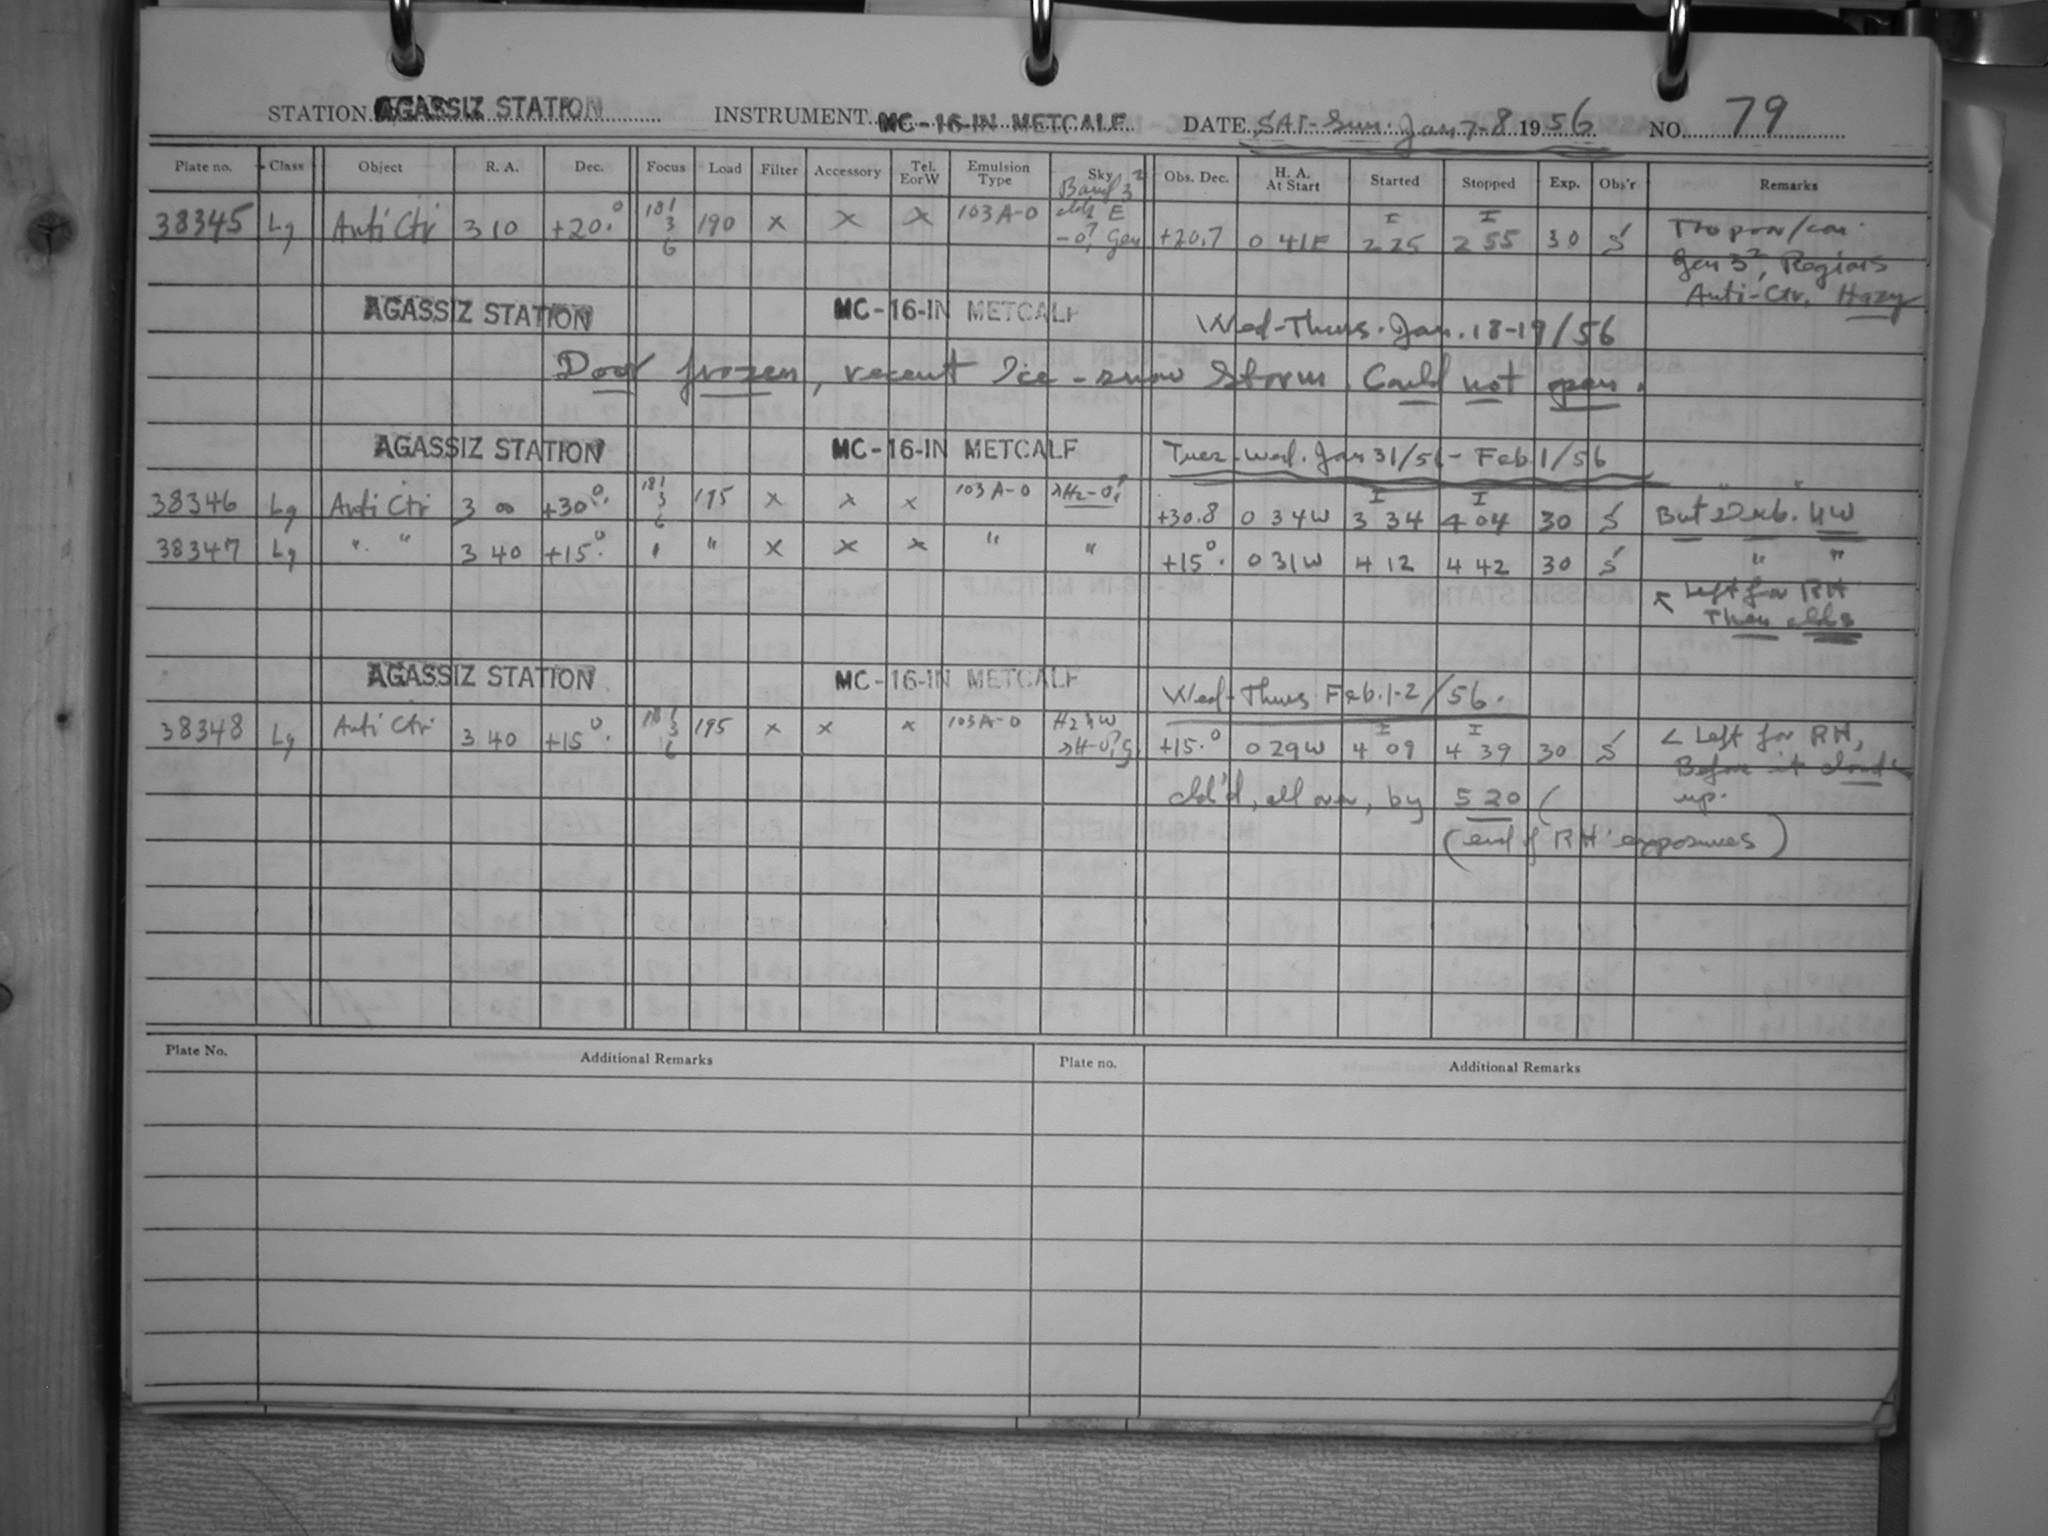 STATION AGASSIZ STATION INSTRUMENT MC-16-IN METCALF DATE SAT-Sun. Jan 7-8 1956 NO. 79
Plate no. Class Object R. A. Dec. Focus Load Filter Accessory Tel. E or W Emulsion Type Sky Obs. Dec. H. A. At Start Started Stopped Exp. Obs'r Remarks
38345 Lg Anti Ctr 3 10 +20.° 181 3 6 190 x x x 103A-O E +20.7 0 41E I 2 25 I 2 55 30 S
Gen 3², Regions
Anti-Ctr. Hazy
AGASSIZ STATION MC-16-IN METCALF Wed-Thurs. Jan. 18-19/56
Door frozen, recent Ice-snow Storm. Could not open.
AGASSIZ STATION MC-16-IN METCALF Tues-Wed. Jan 31/56-Feb. 1/56
38346 Lg Anti Ctr 3 00 +30.° 181 3 6 195 x x x 103A-O +30.8 0 34W I 3 34 I 4 04 30 S But
38347 Lg " " 3 40 +15.° " " x x x " " +15.° 0 31W 4 12 4 42 30 S " "
Left for RH
Then clds
AGASSIZ STATION MC-16-IN METCALF Wed-Thurs. Feb. 1-2/56.
38348 Lg Anti Ctr 3 40 +15.° 181 3 6 195 x x x 103A-O +15.° 0 29W I 4 09 I 4 39 30 S < Left for RH,
Before it cloud'd
cld'd, all over, by 5 20 ( up.
(end of RH exposures)
Plate No. Additional Remarks Plate no. Additional Remarks